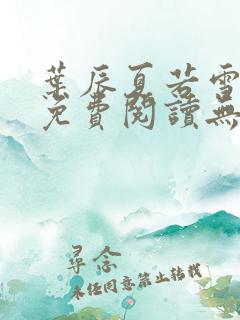 葉辰夏若雪
免費閱讀無
尋念
未經同意禁止轉載